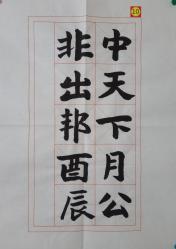 10
中天下月公
非出邦酉辰